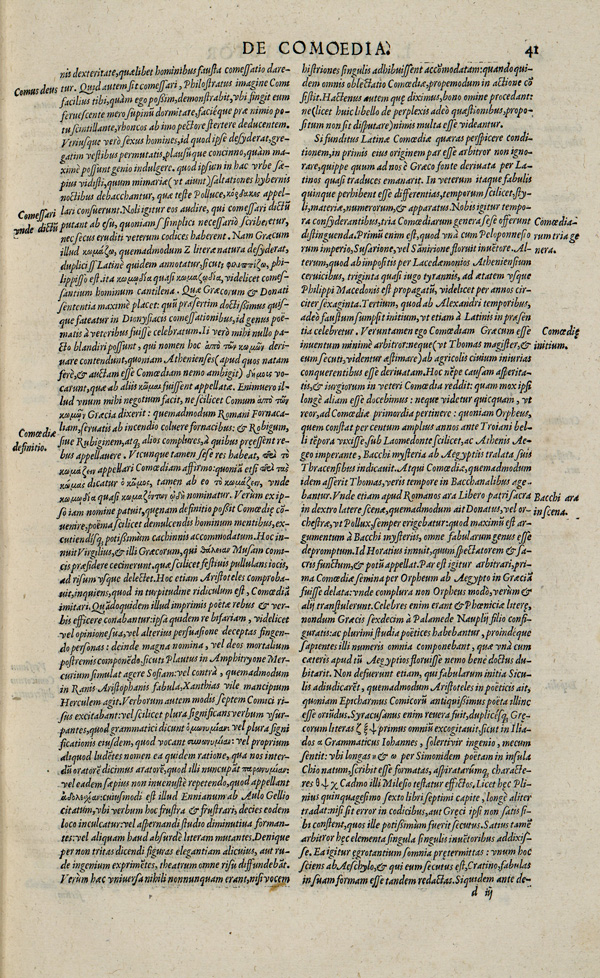 DE COMOEDIA.
41
nis dexteritate, quælibet hominibus fausta comessatio dare-
Comus deus
tur. Quid autem sit comessari, Philostratus imagine Comi
facilius tibi, quàm ego possim, demonstrabit, vbi fingit eum
feruescente mero supinū dormitate, faciéque præ nimio po-
tu scintillante, rhoncos ab imo pectore stertere deducentem.
Veriusque verò sexus homines, id quod ipse desyderat, gre-
gatim vestibus permutatis, plausúque concinno, quàm ma-
ximè possunt genio indulgere. quod ipsum in hac vrbe sæ-
pius vidisti, quum mimaria (vt aiunt) saltationes hybernis
noctibus debacchantur, quæ teste Polluce, appel-
Comessari
vnde dictū
lari consuerunt. Nobis igitur eos audire, qui comessari dictū
putant ab esu, quoniam s simplici necessariò scriberetur,
nec secus eruditi veterum codices haberent. Nam Græcum
illud κωμάζω, quemadmodum Z literæ natura desyderat,
duplici ss Latinè quidem annotatur, sicut φιλιππίζω, phi-
lippisso est. ita κωμῳδία quasi κωμαζῳδία, videlicet comes-
santium hominum cantilena. Quæ Græcorum & Donati
sententia maximè placet: quū præsertim doctissimus quis-
que fateatur in Dionysiacis comessationibus, id genus poë-
matis à veteribus fuisse celebratum. Ii verò mihi nullo pa-
cto blandiri possunt, qui nomen hoc ἀπὸ τῶν κωμῶν deri-
uare contendunt, quoniam Athenienses (apud quos natam
ferè, & auctam esse Comœdiam nemo ambigit) δήμους vo-
carunt, quæ ab aliis κῶμαι fuissent appellatæ. Enimuero il-
lud vnum mihi negotium facit, ne scilicet Comum ἀπὸ τῶν
κωμῶν Græcia dixerit: quemadmodum Romani Fornaca-
liam, seruatis ab incendio coluere fornacibus: & Robigum,
Comœdiæ
definitio.
siue Rubiginem, atq; alios complures, à quibus præessent re-
bus appellauere. Vt cunque tamen sese res habeat,
κωμάζειν appellari Comœdiam affirmo: quoniā etsi
κωμῶν dicatur ὁ κῶμος, tamen ab eo τὸ κωμάζειν, vnde
κωμῳδία quasi κωμαζόντων ᾠδὴ nominatur. Verùm ex ip-
so iam nomine patuit, quænam definitio possit Comœdiæ cō-
uenire, poëma scilicet demulcendis hominum mentibus, ex-
cutiendísq; potissimùm cachinnis accommodatum. Hoc in-
nuit Virgilius, & illi Græcorum, qui Θάλειαν Musam comi-
cis præsidere cecinerunt. quæ scilicet festiuis pullulans iocis,
ad risum vsque delectet. Hoc etiam Aristoteles comproba-
uit, inquiens, quod in turpitudine ridiculum est, Comœdiā
imitari. Quādoquidem illud imprimis poëtæ rebus & ver-
bis efficere conabantur: ipsa quidem re bifariam, videlicet
vel opinione sua, vel alterius persuasione deceptas fingen-
do personas: deinde magna nomina, vel deos mortalium
postremis componēdo. sicuti Plautus in Amphitryone Mer-
curium simulat agere Sosiam: vel contrà, quemadmodum
in Ranis Aristophanis fabula, Xanthias vile mancipium
Herculem agit. Verborum autem modis septem Comici ri-
sus excitabant: vel scilicet plura significans verbum vsur-
pantes, quod grammatici dicunt ὁμωνυμίαν: vel plura signi
ficationis eiusdem, quod vocant συνωνυμίαν: vel proprium
aliquod ludētes nomen ea quidem ratione, qua nos inter-
dū oratorē dicimus aratorē, quod illi nuncupāt παρωνυμίαν:
vel eadem sæpius non inuenustè repetendo, quod appellant
ἀδολεσχίαν: cuiusmodi est illud Ennianum ab Aulo Gellio
citatum, vbi verbum hoc frustra & frustrari, decies eodem
loco inculcatur: vel aspernandi studio diminutiua forman-
tes: vel aliquam haud absurdè literam mutantes. Denique
per non tritas dicendi figuras elegantiam alicuius, aut ru-
de ingenium exprimētes, theatrum omne risu diffundebāt.
Verùm hæc vniuersa nihili nonnunquam erant, nisi vocem
histriones singulis adhibuissent accōmodatam: quando qui-
dem omnis oblectatio Comœdiæ, propemodum in actione cō
sistit. Hactenus autem quæ diximus, bono omine procedant:
ne (licet huic libello de perplexis adeò quæstionibus, propo-
situm non sit disputare) nimis multa esse videantur.
Si funditus Latinæ Comœdiæ quæras perspicere condi-
tionem, in primis eius originem par esse arbitror non igno-
rare, quippe quum ad nos è Græco fonte deriuata per La-
tinos quasi traduces emanarit. In veterum itaque fabulis
quinque perhibent esse differentias, temporum scilicet, sty-
li, materiæ, numerorum, & apparatus. Nobis igitur tempo-
Comœdia-
rum tria ge
nera.
ra consyderantibus, tria Comœdiarum genera sese offerunt
distinguenda. Primū enim est, quod vnà cum Peloponneso
rum imperio, Susarione, vel Sānirione floruit inuētore. Al-
terum, quod ab impositis per Lacedæmonios Atheniensium
ceruicibus, triginta quasi iugo tyrannis, ad ætatem vsque
Philippi Macedonis est propagatū, videlicet per annos cir-
citer sexaginta. Tertium, quod ab Alexandri temporibus,
adeò faustum sumpsit initium, vt etiam à Latinis in præsen
tia celebretur. Veruntamen ego Comœdiam Græcum esse
Comœdiæ
initium.
inuentum minimè arbitror: neque (vt Thomas magister, &
eum secuti, videntur æstimare) ab agricolis ciuium iniurias
conquerentibus esse deriuatam. Hoc nēpe causam asperita-
tis, & iurgiorum in veteri Comœdia reddit: quam mox ipsi
longè aliam esse docebimus: neque videtur quicquam, vt
reor, ad Comœdiæ primordia pertinere: quoniam Orpheus,
quem constat per centum amplius annos ante Troiani bel-
li tēpora vixisse, sub Laomedonte scilicet, ac Athenis Ae-
geo imperante, Bacchi mysteria ab Aegyptiis tralata suis
Thracensibus indicauit. Atqui Comœdiæ, quemadmodum
idem asserit Thomas, veris tempore in Bacchanalibus age-
bantur. Vnde etiam apud Romanos ara Libero patri sacra
Bacchi ara
in scena.
in dextro latere scenæ, quemadmodum ait Donatus, vel or-
chestræ, vt Pollux, semper erigebatur: quod maximū est ar-
gumentum à Bacchi mysteriis, omne fabularum genus esse
depromptum. Id Horatius innuit, quum spectatorem & sa-
cris functum, & potū appellat. Par est igitur arbitrari, pri-
ma Comœdiæ semina per Orpheum ab Aegypto in Græciā
fuisse delata: vnde complura non Orpheus modò, verùm &
alij transtulerunt. Celebres enim erant & Phœniciæ literæ,
nondum Græcis sexdecim à Palamede Nauplij filio confi-
guratis: ac plurimi studia poëtices habebantur, proindeque
sapientes illi numeris omnia componebant, quæ vnà cum
cæteris apud tū Aegyptios floruisse nemo bene doctus du-
bitarit. Non defuerunt etiam, qui fabularum initia Sicu-
lis adiudicarēt, quemadmodum Aristoteles in poëticis ait,
quoniam Epicharmus Comicorū antiquissimus poëta illinc
esse oriūdus. Syracusanus enim reuera fuit, duplicésq; Græ-
corum literas ζ ξ ψ primus omniū excogitauit. sicut in Ilia-
dos α Grammaticus Iohannes, solertivir ingenio, mecum
sentit: vbi longas & ω per Simonidem poëtam in insula
Chio natum, scribit esse formatas, aspiratarúmq; characte-
res θ φ χ Cadmo illi Milesio testatur effictos. Licet hæc Pli-
nius quinquagesimo sexto libri septimi capite, longè aliter
tradat: nisi sit error in codicibus, aut Græci ipsi non satis si-
bi constent, quos ille potissimùm fuerit secutus. Satius tamē
arbitror hæc elementa singula singulis inuētoribus addixis-
se. Ea igitur egrotantium somnia prætermittas: vnum hoc
sciens ab Aeschylo, & qui eum secutus est, Cratino, fabulas
in suam formam esse tandem redactas. Siquidem ante de-
d iij